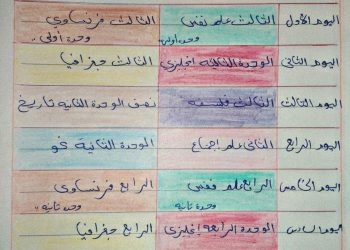 اليوم الأول الثالث علم نفس الثالث فرنساوي
وحدة أولى وحدة أولى
اليوم الثاني الوحدة الثانية إنجليزي الثالث جغرافيا
اليوم الثالث الثالث فلسفة نصف الوحدة الثانية تاريخ
اليوم الرابع الثاني علم إجتماع الوحدة الثانية نحو
اليوم الخامس الرابع علم نفس الرابع فرنساوي
وحدة ثانية وحدة ثانية
اليوم السادس الوحدة الرابعة إنجليزي الرابع جغرافيا